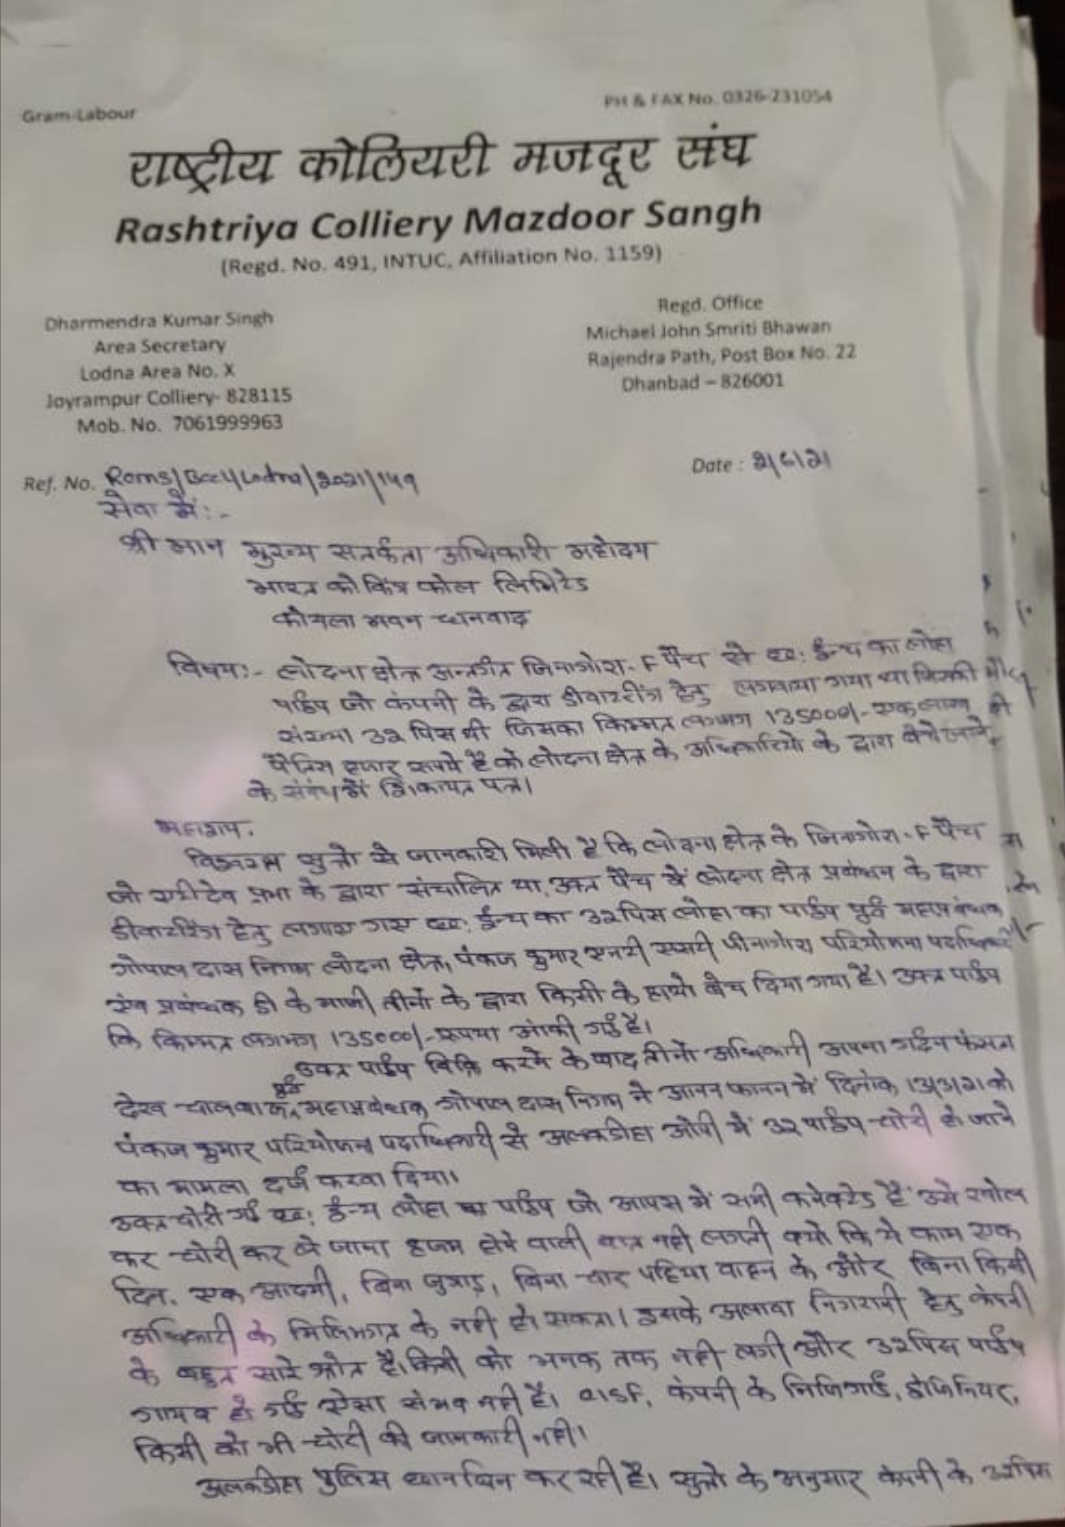 Gram-Labour
PH & FAX No. 0326-231054
राष्ट्रीय कोलियरी मजदूर संघ
Rashtriya Colliery Mazdoor Sangh
(Regd. No. 491, INTUC, Affiliation No. 1159)
Dharmendra Kumar Singh
Area Secretary
Lodna Area No. X
Joyrampur Colliery- 828115
Mob. No. 7061999963
Regd. Office
Michael John Smriti Bhawan
Rajendra Path, Post Box No. 22
Dhanbad – 826001
Ref. No. Rcms/Bccl/Lodna/2021/149
Date : 2/6/21
सेवा में:-
श्री मान मुख्य सतर्कता अधिकारी महोदय
भारत कोकिंग कोल लिमिटेड
कोयला भवन धनबाद
विषय:- लोदना क्षेत्र अन्तर्गत जिनागोरा-F पैच से छः ईन्च का लोहा
पाईप जो कंपनी के द्वारा डीवाटरींग हेतु लगवाया गया था जिसकी
संख्या 32 पिस थी जिसका किम्मत लगभग 135000/- एक लाख
पैंतिस हजार रूपये है को लोदना क्षेत्र के अधिकारियो के द्वारा बेचे जाने
के संबंध में शिकायत पत्र।
महाशय,
विश्वस्त सुत्रो से जानकारी मिली है कि लोदना क्षेत्र के जिनागोरा-F पैच
जो देव प्रभा के द्वारा संचालित था, उक्त पैच में लोदना क्षेत्र प्रबंधन के द्वारा
डीवाटरिंग हेतु लगाए गए छः ईन्च का 32 पिस लोहा का पाईप पुर्व महाप्रबंधक
गोपाल दास निगम लोदना क्षेत्र, पंकज कुमार एनटी एसटी जीनागोरा परियोजना पदाधिकारी
एंव प्रबंधक डी के माजी तीनों के द्वारा किसी के हाथो बेच दिया गया है। उक्त पाईप
कि किम्मत लगभग 135000/- रूपया आंकी गई है।
उक्त पाईप बिक्रि करने के बाद तीनों अधिकारी अपना गर्दन फंसता
देख चालबाज पुर्व महाप्रबंधक गोपाल दास निगम ने आनन फानन में दिनांक 13/3/21 को
पंकज कुमार परियोजना पदाधिकारी से अलकडीहा ओपी में 32 पाईप चोरी हो जाने
का मामला दर्ज करवा दिया।
उक्त चोरी गई छः ईन्च लोहा का पाईप जो आपस में सभी कनेक्टेड है उसे खोल
कर चोरी कर ले जाना हजम होने वाली बात नही लगती क्यो कि ये काम एक
दिन, एक आदमी, बिना जुगाड़, बिना चार पहिया वाहन के और बिना किसी
अधिकारी के मिलिभगत के नही हो सकता। इसके अलावा निगरानी हेतु कंपनी
के बहुत सारे श्रोत है। किसी को भनक तक नही लगी और 32 पिस पाईप
गायब हो गई ऐसा संभव नही है। CISF, कंपनी के निजिगार्ड, इंजिनियर,
किसी को भी चोरी की जानकारी नही।
अलकडीहा पुलिस छानबिन कर रही है। सुत्रो के अनुसार कंपनी के 32 पिस